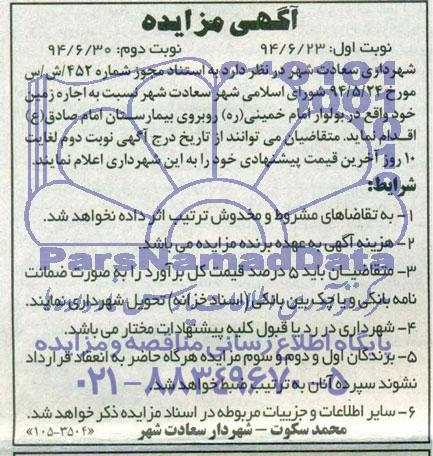 آگهی مزایده
نوبت اول: ۹۴/۶/۲۳ نوبت دوم: ۹۴/۶/۳۰
شهرداری سعادت شهر در نظر دارد به استناد مجوز شماره ۴۵۲/ش/س
مورخ ۹۴/۵/۲۴ شورای اسلامی شهر سعادت شهر نسبت به اجاره زمین
خود واقع در بولوار امام خمینی(ره) روبروی بیمارستان امام صادق(ع)
اقدام نماید. متقاضیان می توانند از تاریخ درج آگهی نوبت دوم لغایت
۱۰ روز آخرین قیمت پیشنهادی خود را به این شهرداری اعلام نمایند.
شرایط:
۱- به تقاضاهای مشروط و مخدوش ترتیب اثر داده نخواهد شد.
۲- هزینه آگهی به عهده برنده مزایده می باشد.
ParsNamadData
۳- متقاضیان باید ۵ درصد قیمت کل برآورد را به صورت ضمانت
نامه بانکی و یا چک بین بانکی (اسناد خزانه) تحویل شهرداری نمایند.
۴- شهرداری در رد یا قبول کلیه پیشنهادات مختار می باشد.
پایگاه اطلاع رسانی مناقصه و مزایده
۵- برندگان اول و دوم و سوم مزایده هرگاه حاضر به انعقاد قرارداد
نشوند سپرده آنان به ترتیب ضبط خواهد شد.
۰۲۱-۸۸۳۴۹۶۷۰-۵
۶- سایر اطلاعات و جزییات مربوطه در اسناد مزایده ذکر خواهد شد.
محمد سکوت - شهردار سعادت شهر «۱۰۵-۳۵۰۴»